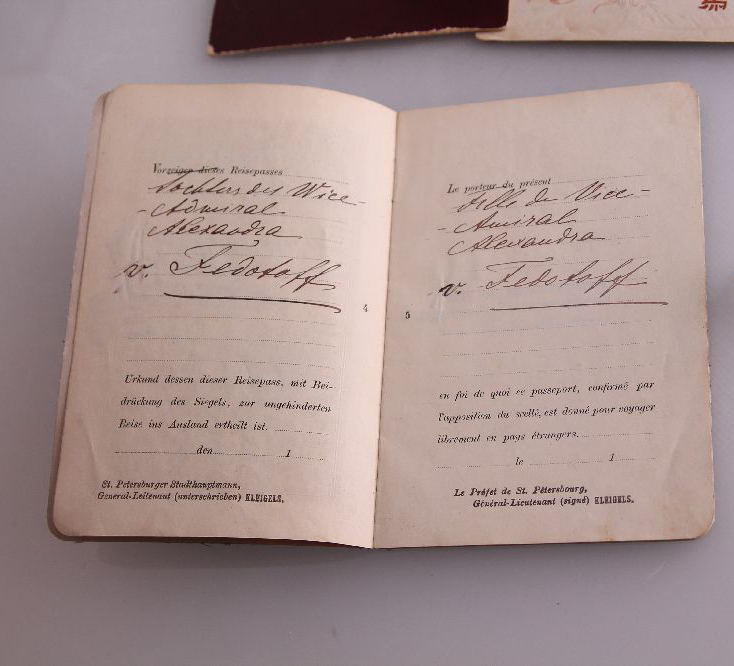 Vorzeiger dieses Reisepasses
Tochter des Wice-
-Admiral
Alexandra
v. Fedotoff
4
Urkund dessen dieser Reisepass, mit Bei-
drückung des Siegels, zur ungehinderten
Reise ins Ausland ertheilt ist.
den 1
St. Petersburger Stadthauptmann,
General-Leitenant (unterschrieben) KLEIGELS.
Le porteur du présent
fille du Vice-
-Amiral
Alexandra
v. Fedotoff
5
en foi de quoi ce passeport, confirmé par
l'apposition du scellé, est donné pour voyager
librement en pays étrangers.
le 1
Le Préfet de St. Pétersbourg,
Général-Lieutenant (signé) KLEIGELS.